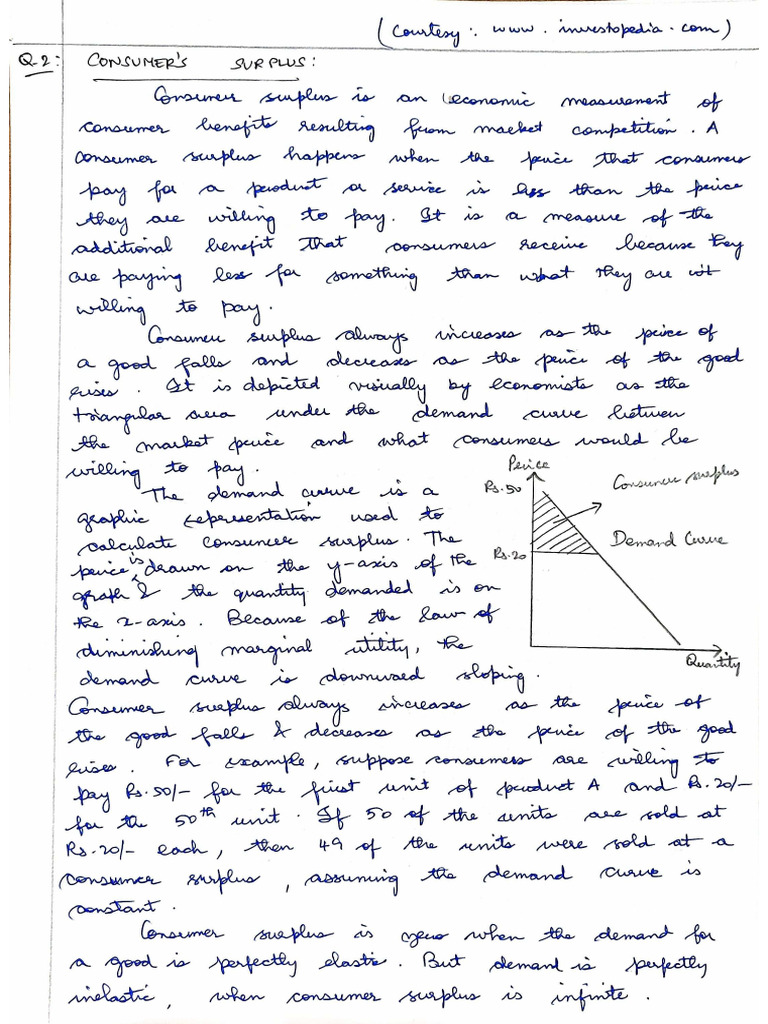 (Courtesy: www.investopedia.com)
Q.2: CONSUMER'S SURPLUS:
Consumer surplus is an economic measurement of
consumer benefits resulting from market competition. A
consumer surplus happens when the price that consumers
pay for a product or service is less than the price
they are willing to pay. It is a measure of the
additional benefit that consumers receive because they
are paying less for something than what they are
willing to pay.
Consumer surplus always increases as the price of
a good falls and decreases as the price of the good
rises. It is depicted visually by economists as the
triangular area under the demand curve between
the market price and what consumers would be
willing to pay.
The demand curve is a
graphic representation used to
calculate consumer surplus. The
price is drawn on the y-axis of the
graph & the quantity demanded is on
the x-axis. Because of the law of
diminishing marginal utility, the
demand curve is downward sloping.
Price
Rs.50
Consumer surplus
Rs.20
Demand Curve
Quantity
Consumer surplus always increases as the price of
the good falls & decreases as the price of the good
rises. For example, suppose consumers are willing to
pay Rs.50/- for the first unit of product A and Rs.20/-
for the 50th unit. If 50 of the units are sold at
Rs.20/- each, then 49 of the units were sold at a
consumer surplus, assuming the demand curve is
constant.
Consumer surplus is zero when the demand for
a good is perfectly elastic. But demand is perfectly
inelastic, when consumer surplus is infinite.